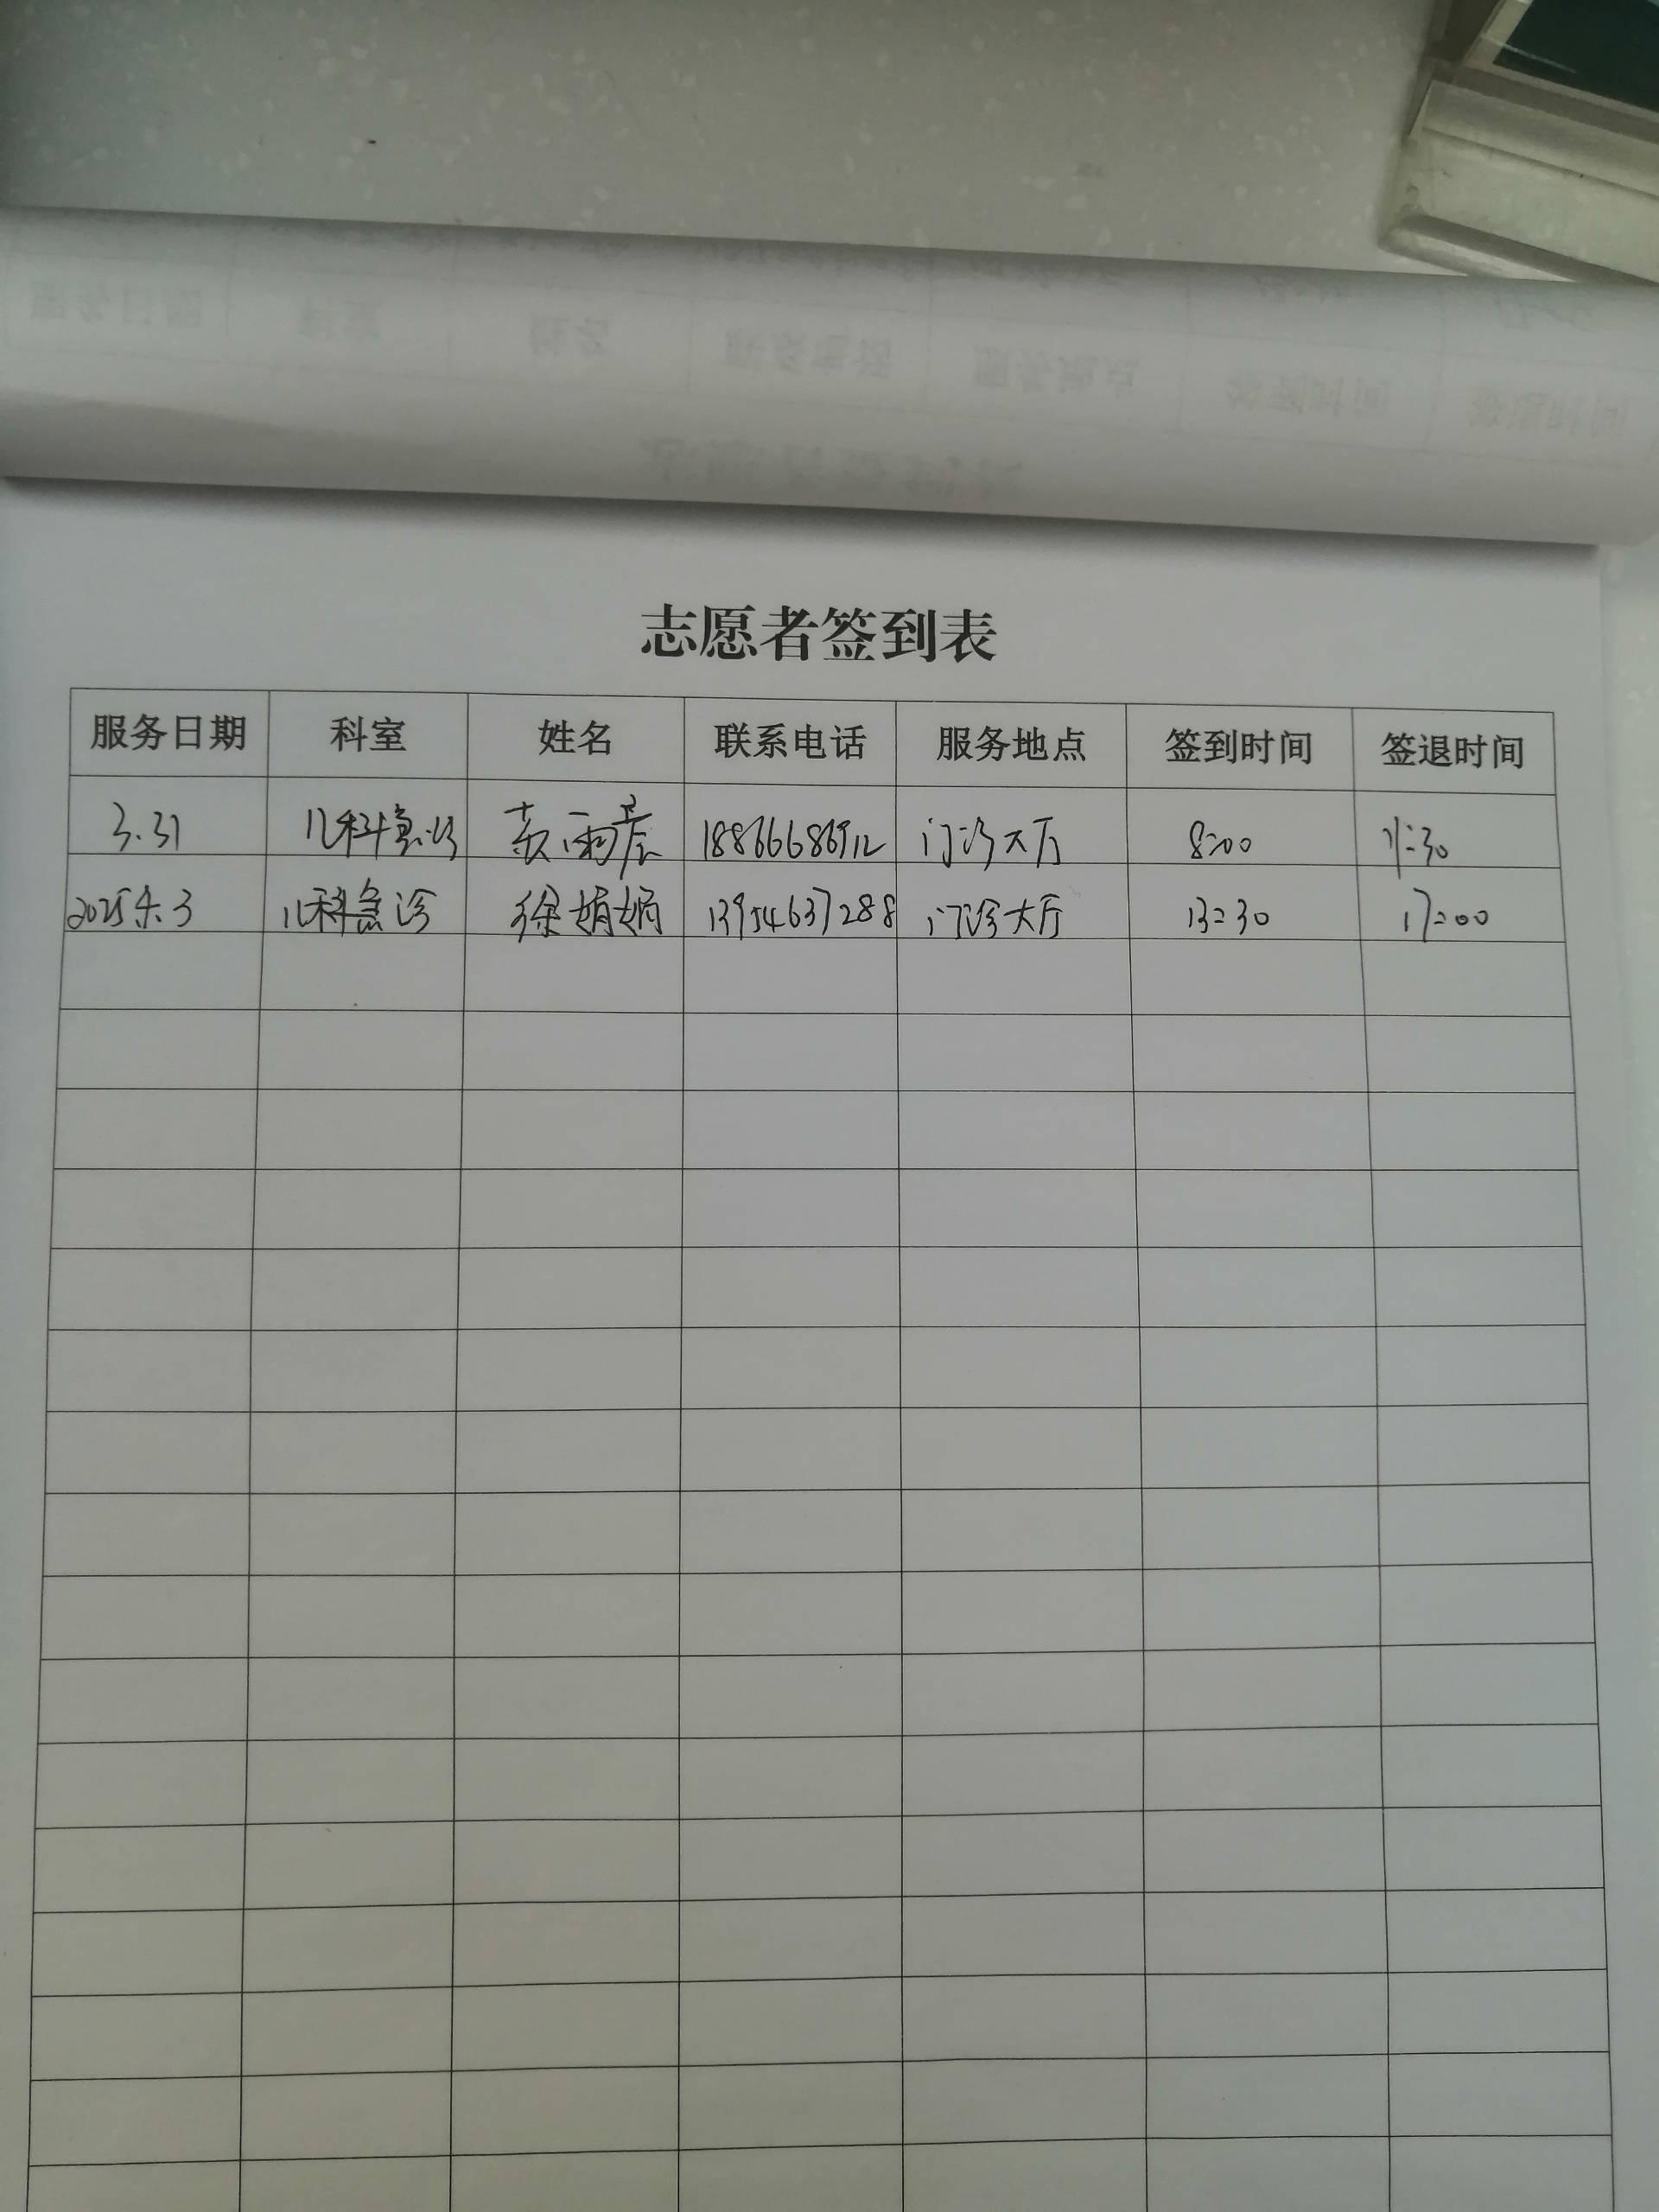 志愿者签到表
服务日期 科室 姓名 联系电话 服务地点 签到时间 签退时间
3.31 儿科急诊 雨 18866686912 门诊大厅 8:00 11:30
2025.4.3 儿科急诊 徐娟娟 13954637288 门诊大厅 13:30 17:00